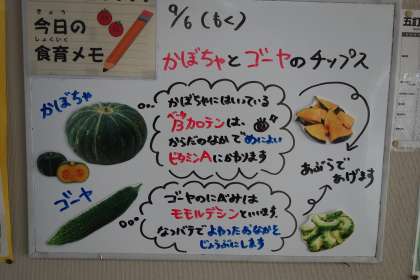 きょう
今日の
しょくいく
食育メモ
9/6(もく)
かぼちゃとゴーヤのチップス
かぼちゃ
かぼちゃにはいっている
ベータ
βカロテンは、
からだのなかで めによい
ビタミンAにかわります
ゴーヤ
ゴーヤのにがみは
モモルデシンといいます。
なつバテで よわったおなかを
じょうぶにします
あぶらで
あげます